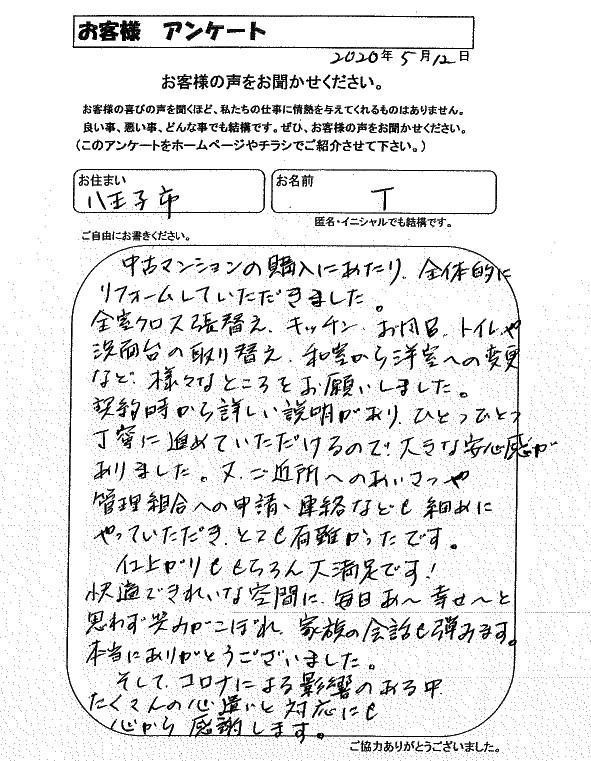 お客様 アンケート
2020年5月12日
お客様の声をお聞かせください。
お客様の喜びの声を聞くほど、私たちの仕事に情熱を与えてくれるものはありません。
良い事、悪い事、どんな事でも結構です。ぜひ、お客様の声をお聞かせください。
(このアンケートをホームページやチラシでご紹介させて下さい。)
お住まい
八王子市
お名前
T
匿名・イニシャルでも結構です。
ご自由にお書きください。
中古マンションの購入にあたり、全体的に
リフォームしていただきました。
全室クロス張替え、キッチン、お風呂、トイレや
洗面台の取り替え、和室から洋室への変更
など、様々なところをお願いしました。
契約時から詳しい説明があり、ひとつひとつ
丁寧に進めていただけるので、大きな安心感が
ありました。又、ご近所へのあいさつや
管理組合への申請、連絡なども細めに
やっていただき、とても有難かったです。
仕上がりももちろん大満足です!
快適できれいな空間に、毎日あ〜幸せ〜と
思わず笑みがこぼれ、家族の会話も弾みます。
本当にありがとうございました。
そして、コロナによる影響のある中
たくさんの心遣いと対応にも
心から感謝します。
ご協力ありがとうございました。